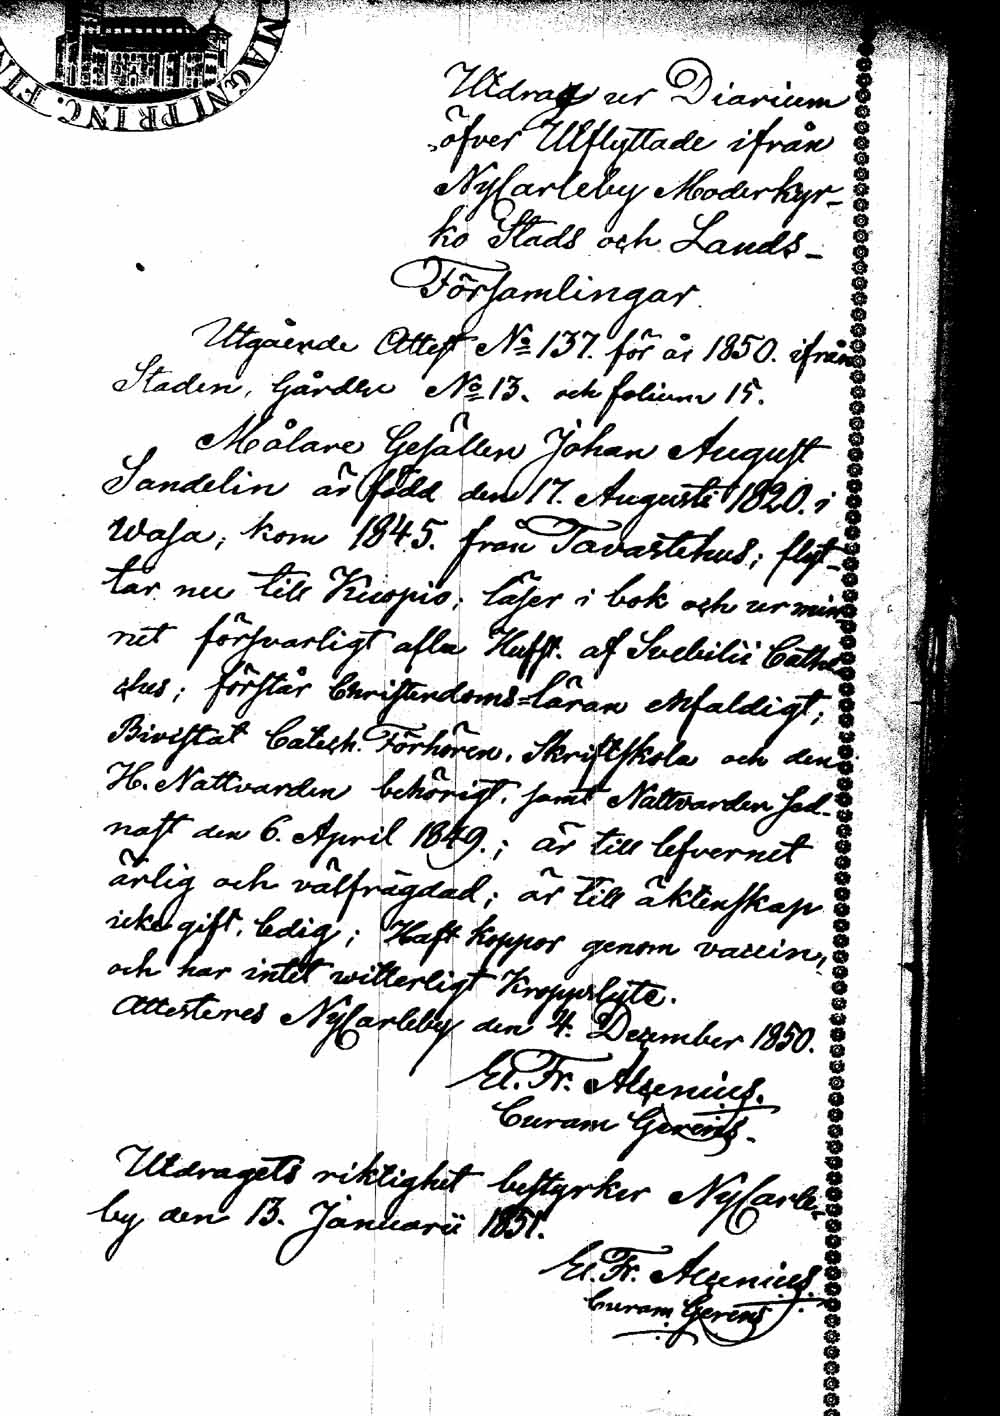 MAGNI PRINC. FIN
Utdrag ur Diarium
öfver Utflyttade ifrån
NyCarleby Moderkyr-
ko Stads och Lands-
Församlingar.
Utgående Attest No 137. för år 1850. ifrån
Staden, Gården No 13. och folium 15.
Målare Gesällen Johan August
Sandelin är född den 17. Augusti 1820. i
Wasa; kom 1845. från Tavastehus; flyt-
tar nu till Kuopio; läser i bok och ur min
net försvarligt afla Hufst. af Svebilii Cathe
chus; förstår Christendoms-läran enfaldigt;
Bivistat Catech. Förhören, Skriftskola och den
H. Nattvarden behörigt, samt Nattvarden sed-
nast den 6. April 1849.; är till lefvernet
ärlig och välfrägdad; är till äktenskap
icke gift, ledig; Haft koppor genom vaccin,
och har intet witterligt Kroppslyte.
Attesteres NyCarleby den 4. December 1850.
El. Fr. Alcenius.
Curam Gerens.
Utdragets riktighet bestyrker NyCarle-
by den 13. Januarii 1851.
El. Fr. Alcenius.
Curam Gerens